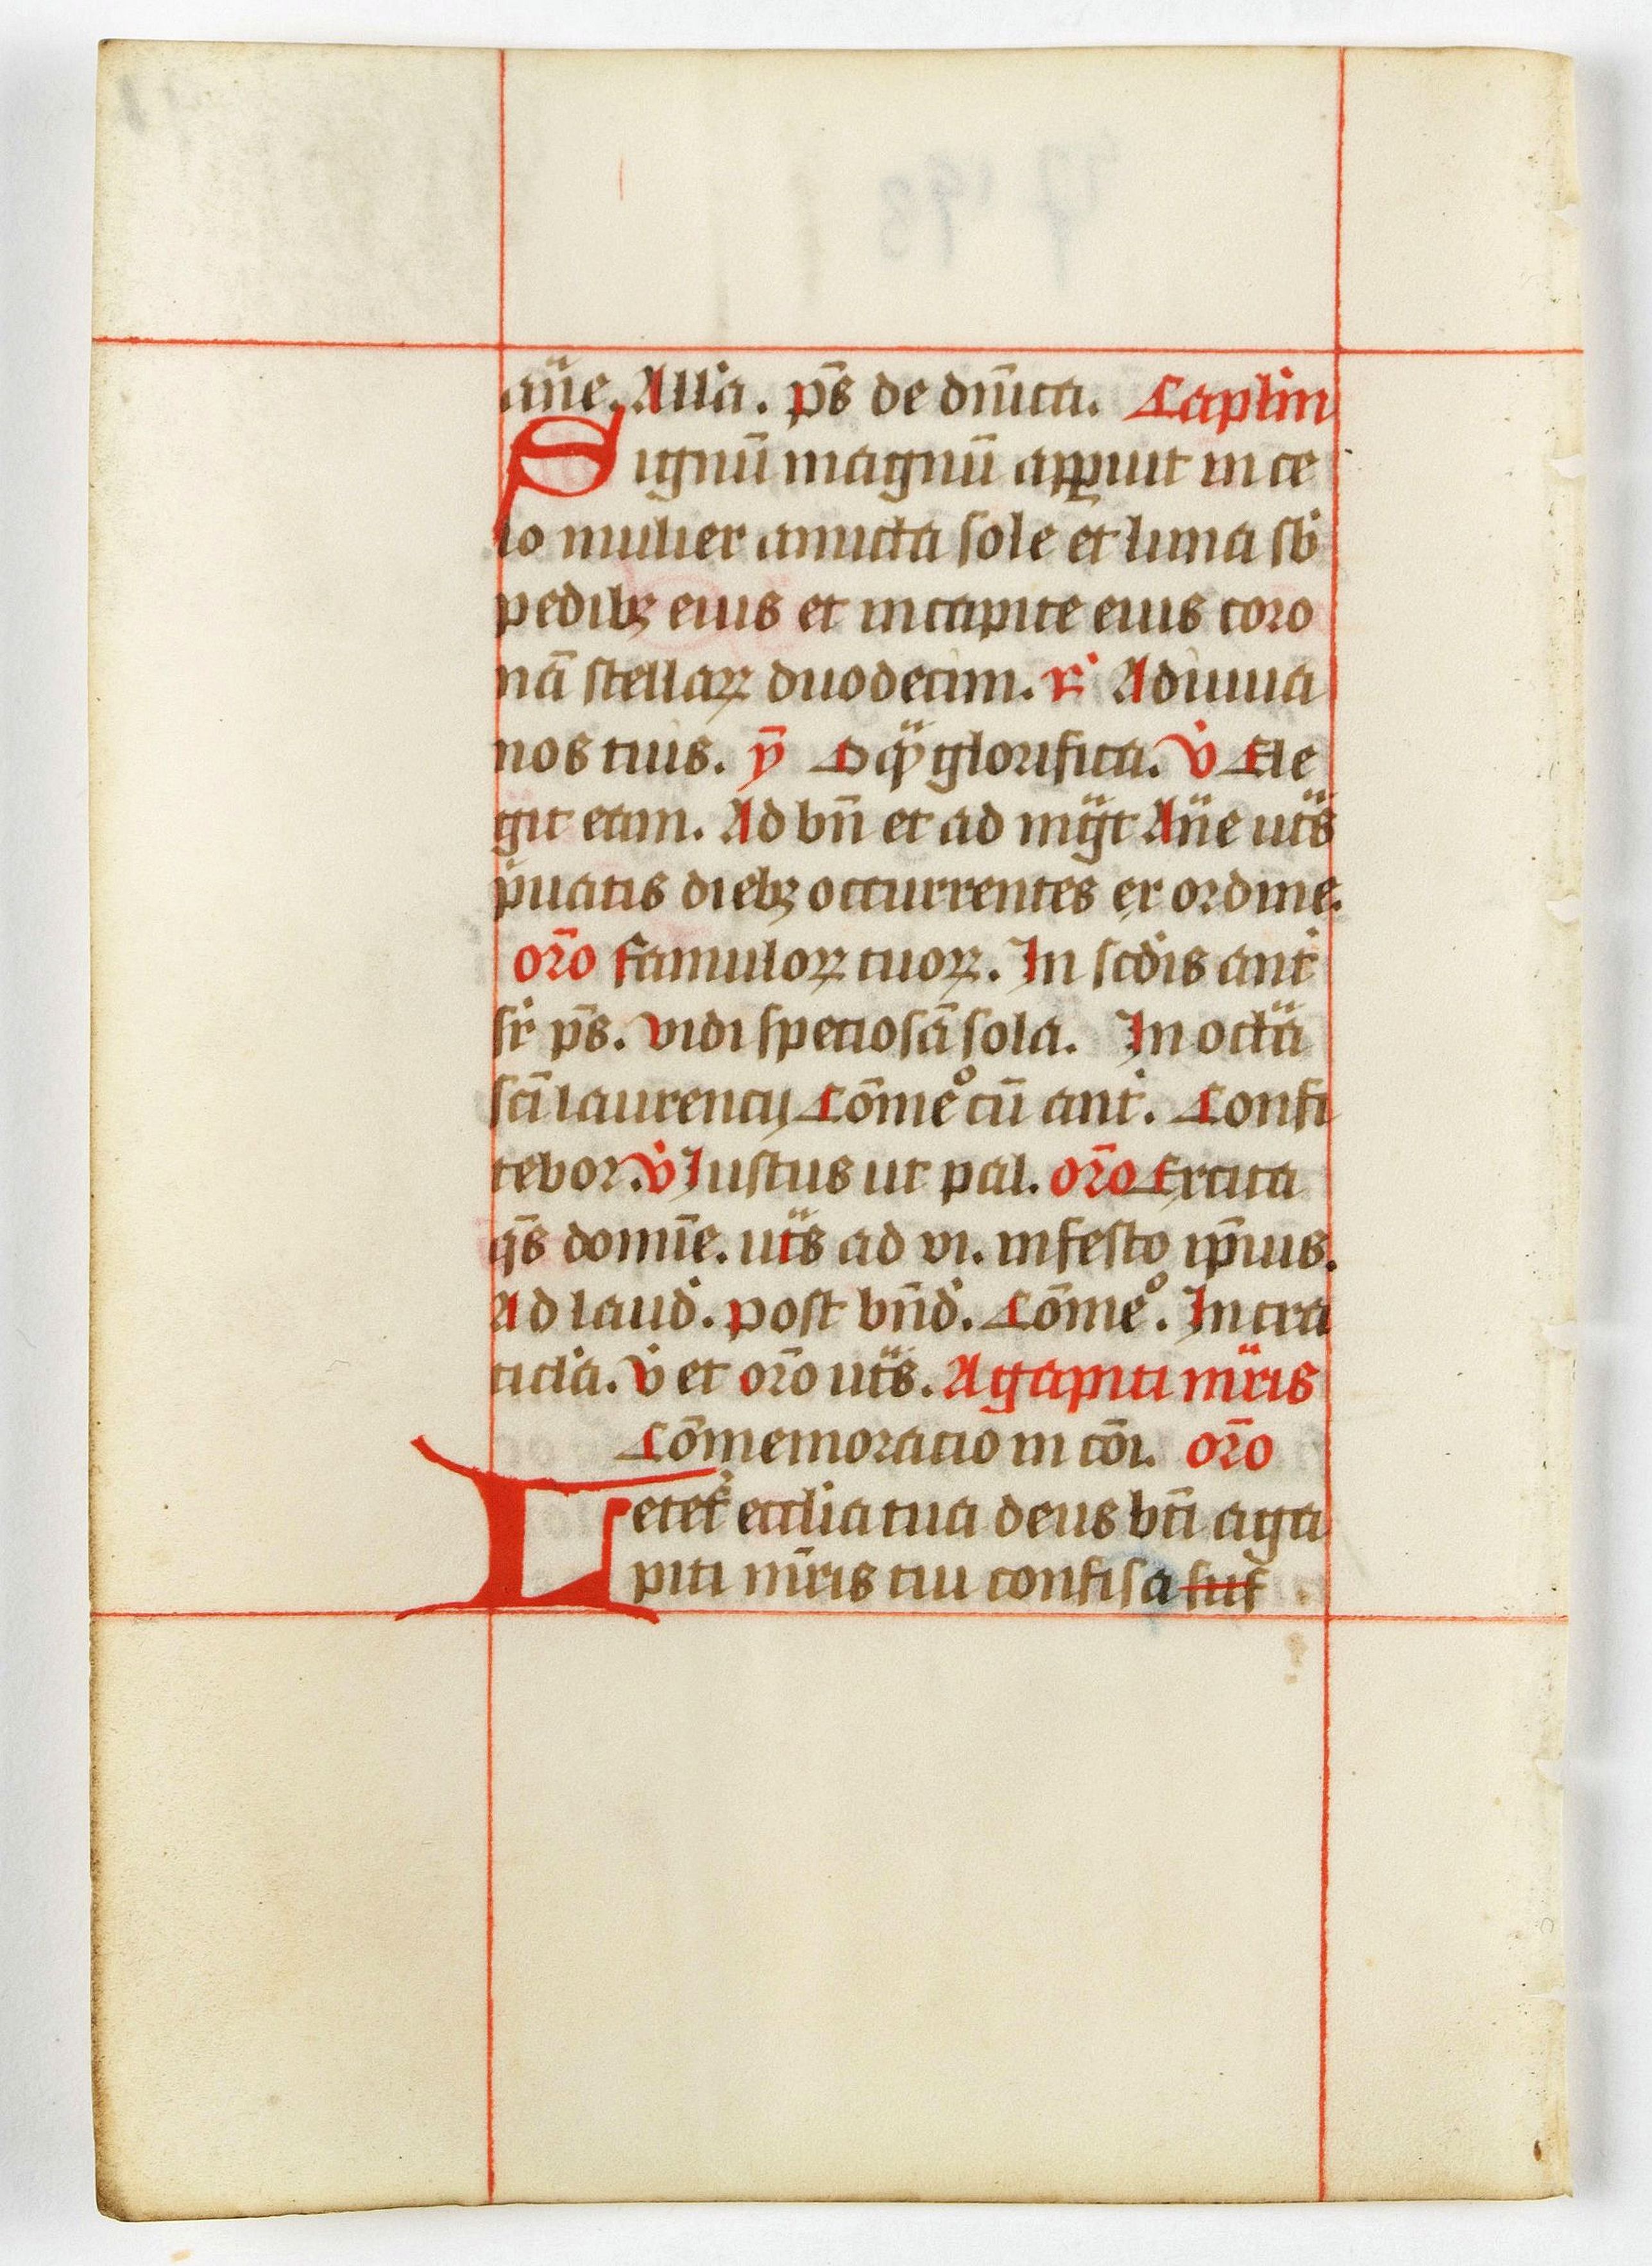 an̄e. All'a. ps̄ de dn̄ica. Capl'm
Signū magnū apꝑuit in ce
lo mulier amicta sole et luna sb'
pedibꝫ eius et in capite eius coro
nā stellaꝝ duodecim. r' Adiuua
nos tuis. ȳ O qͣ glorifica. v' Ele
git eam. Ad bn̄ et ad mg̈t An̈e utͣs
p'uatis diebꝫ occurrentes ex ordine.
or̄o Famuloꝝ tuoꝝ. In scd'is ant'
sr' ps̄. vidi speciosā sola. In octaͣ
scī laurencij Cōmeº cū ant'. Confi
tebor. v' Iustus ut pal. or̄o Excita
qs̄ domīe. utͣs ad vi. in festo ip̄ius.
Ad laud'. post bn̄d'. Cōmeº. In cra
ticl'a. v' et or̄o utͣs. Agapiti mr̈is
Cōmemoratio in cōi. or̄o
Letet' eccl'ia tua deus bt̄i aga
piti mr̄is tui confisa suf